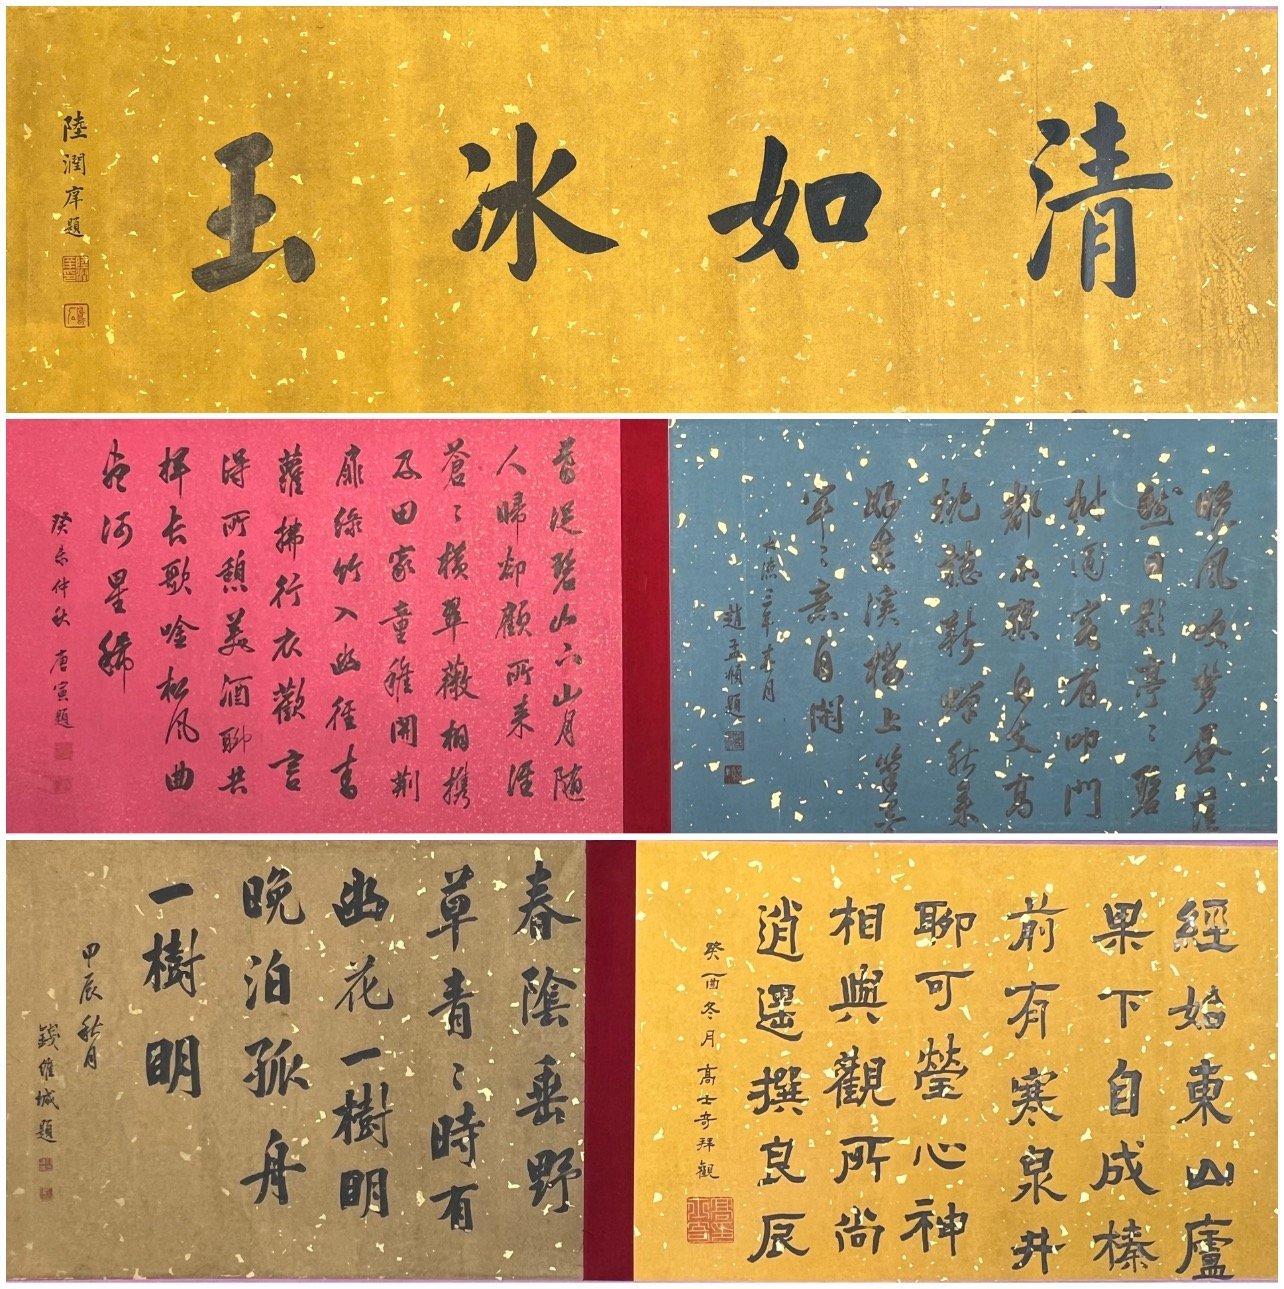 清如冰玉
陸潤庠題
晚風吹夢昼
日影亭々碧
客有叩門
都不應自支高
枕聽新蟬秋來
好在溪橋上
年々意自閒
大德二年十月
趙孟頫題
暮從碧山下山月隨
人歸却顧所來涇
蒼々橫翠薇相携
及田家童稚開荊
扉綠竹入幽徑青
蘿拂行衣歡言
得所憩美酒聊共
揮長歌吟松風曲
盡河星稀
癸未仲秋 唐寅題
經始東山廬
果下自成榛
前有寒泉井
聊可瑩心神
相與觀所尚
逍遥撰良辰
癸酉冬月 高士奇拜觀
春陰垂野
草青々時有
幽花一樹明
晚泊孤舟
一樹明
甲辰秋月
錢維城題